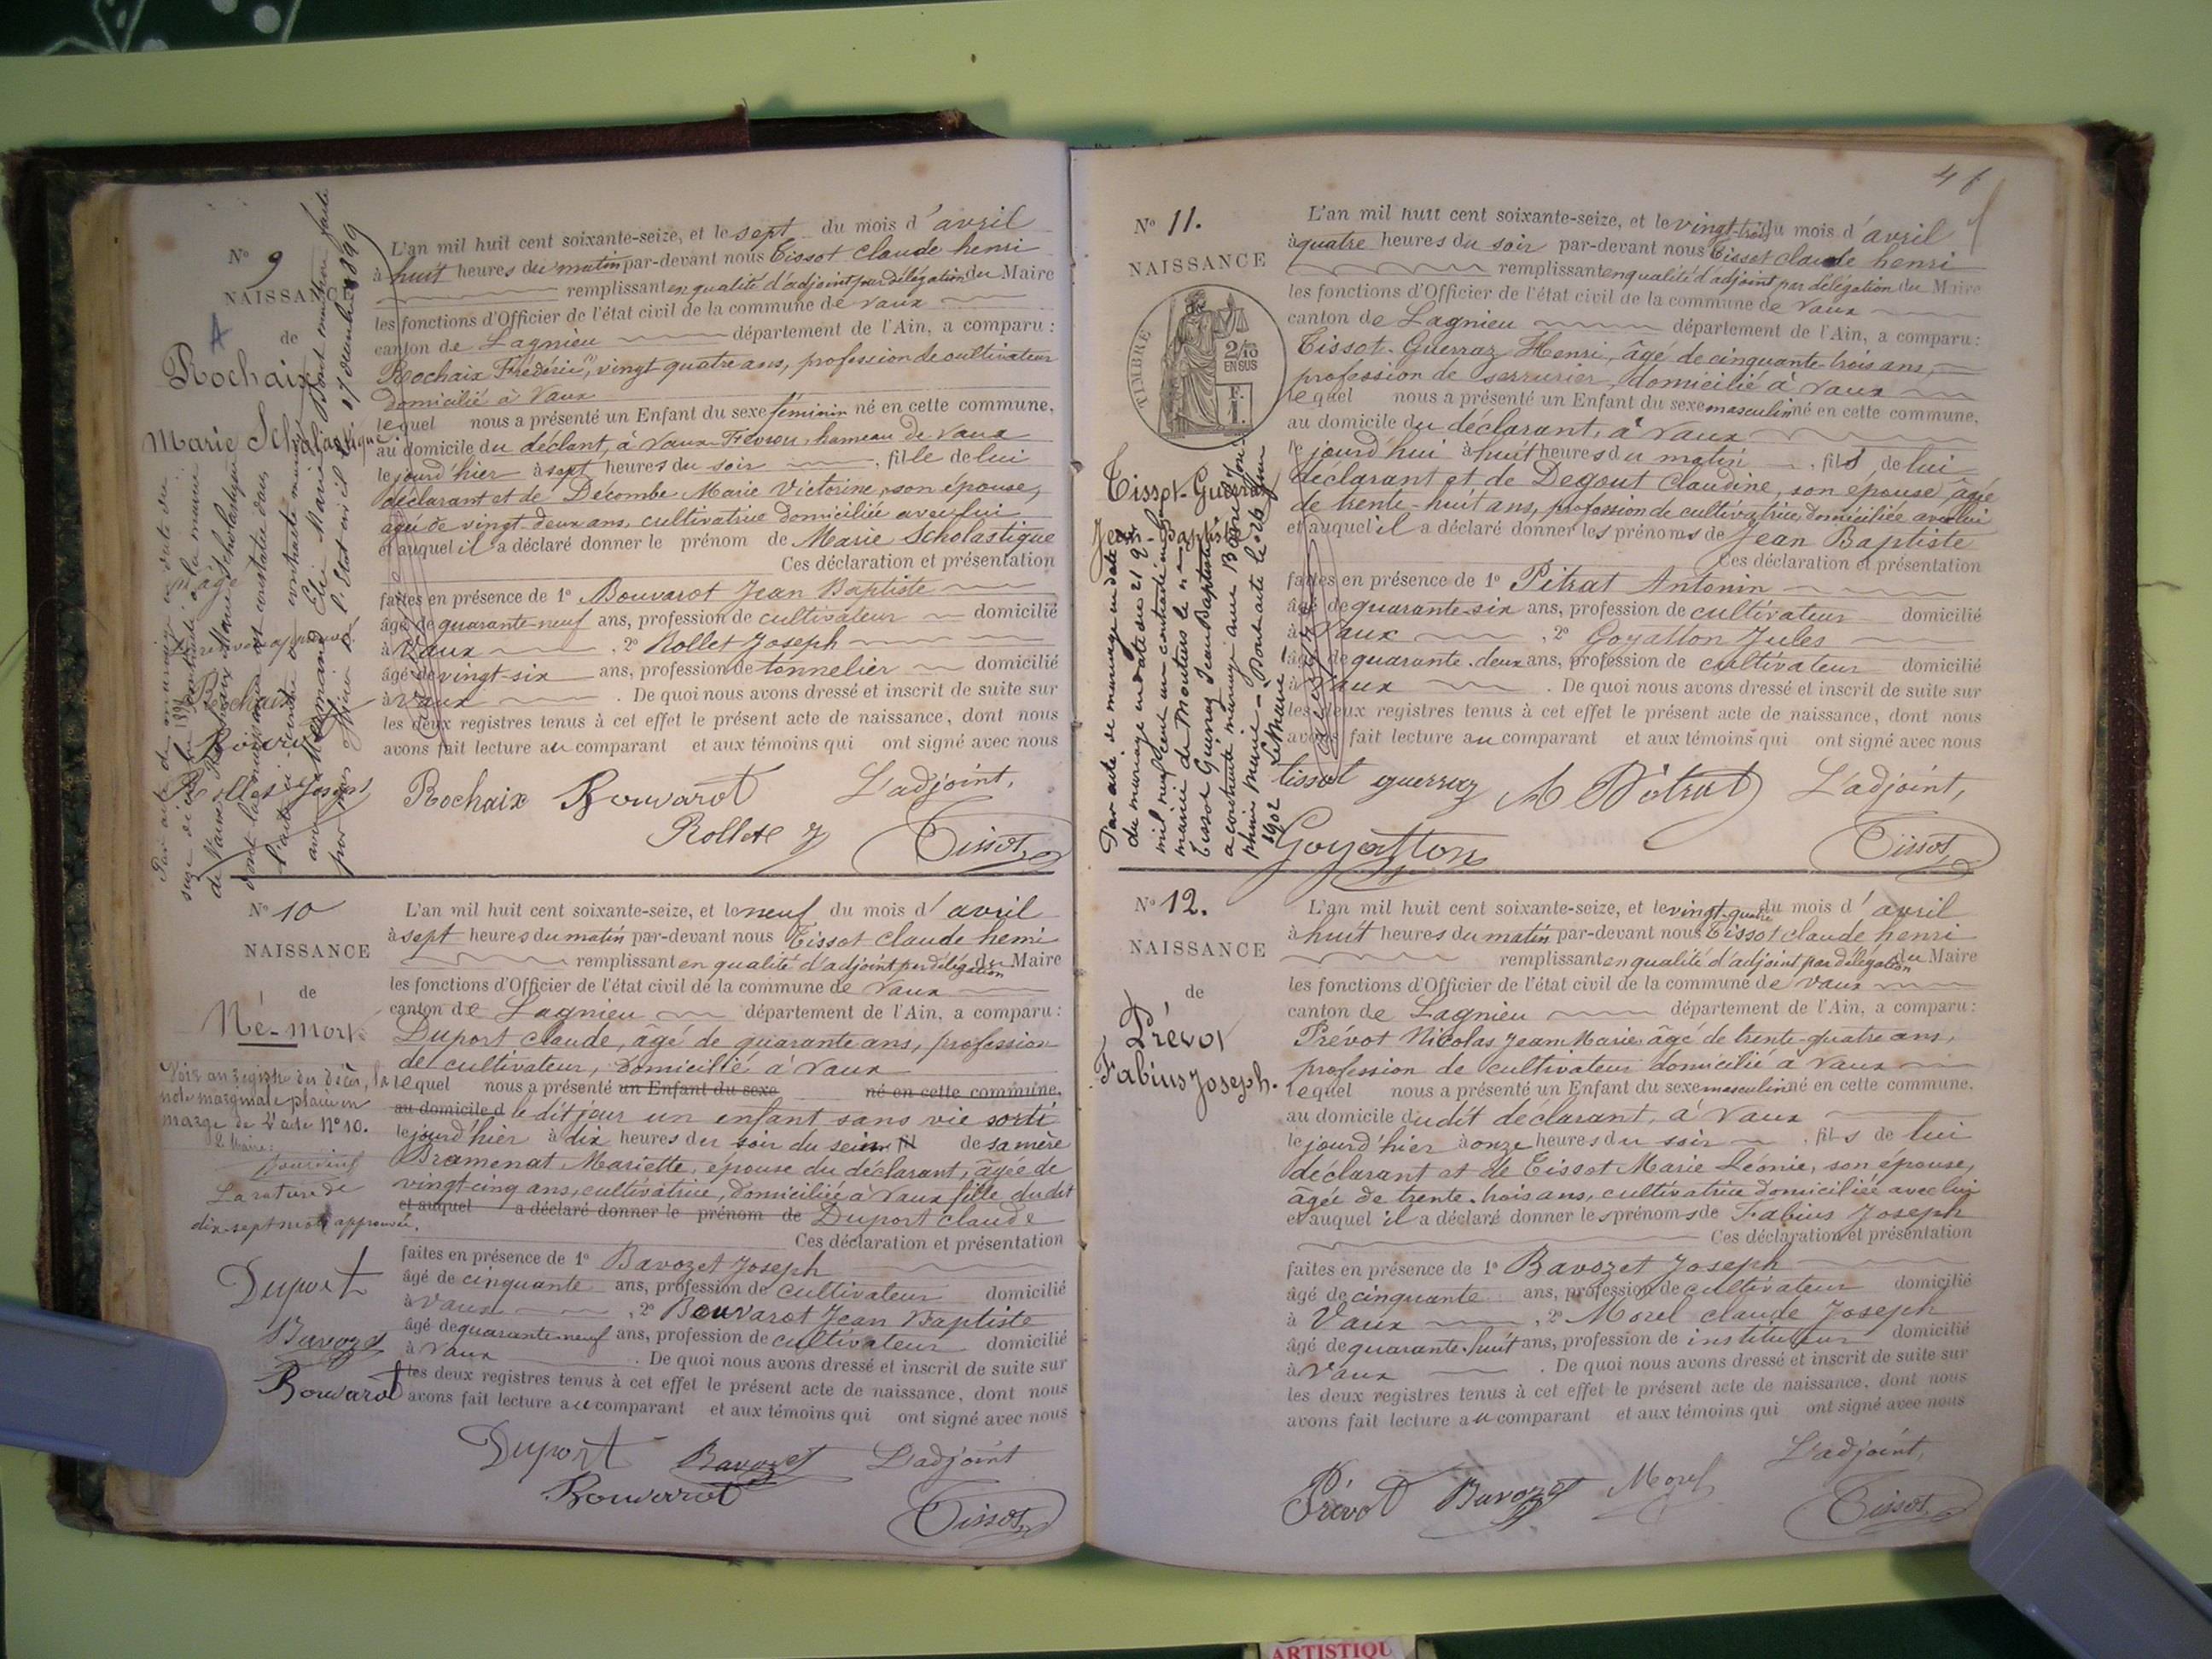 N° 9
NAISSANCE
de
Rochaix
Marie Scholastique
L'an mil huit cent soixante-seize, et le sept du mois d'avril
à huit heures du matin par-devant nous Tissot Claude henri
remplissant en qualité d'adjoint par délégation du Maire
les fonctions d'Officier de l'état civil de la commune de Vaux
canton de Lagnieu département de l'Ain, a comparu :
Rochaix Frédéric, vingt quatre ans, profession de cultivateur
domicilié à Vaux
lequel nous a présenté un Enfant du sexe féminin né en cette commune,
au domicile du déclant, à Vaux-Févrou, hameau de Vaux
le jourd'hier à sept heures du soir , fille de lui
déclarant et de Décombe Marie Victorine, son épouse,
âgée de vingt-deux ans, cultivatrice domiciliée avec lui
et auquel il a déclaré donner le prénom de Marie Scholastique
Ces déclaration et présentation
faites en présence de 1° Bouvarot Jean Baptiste
âgé de quarante-neuf ans, profession de cultivateur domicilié
à Vaux , 2° Rollet Joseph
âgé de vingt-six ans, profession de tonnelier domicilié
à Vaux . De quoi nous avons dressé et inscrit de suite sur
les deux registres tenus à cet effet le présent acte de naissance, dont nous
avons fait lecture au comparant et aux témoins qui ont signé avec nous
Rochaix Bouvarot L'adjoint,
Rollet J Tissot
N° 10
NAISSANCE
de
Né-mort
Voir au registre des décès, la
note marginale placée en
marge de l'acte N° 10.
Le Maire:
La rature de
dix-sept mots approuvée.
Duport
Bavozet
Bouvarot
L'an mil huit cent soixante-seize, et le neuf du mois d'avril
à sept heures du matin par-devant nous Tissot Claude henri
remplissant en qualité d'adjoint par délégation du Maire
les fonctions d'Officier de l'état civil de la commune de Vaux
canton de Lagnieu département de l'Ain, a comparu :
Duport Claude, âgé de quarante ans, profession
de cultivateur, domicilié à Vaux
lequel nous a présenté un Enfant du sexe né en cette commune,
au domicile d le dit jour un enfant sans vie sorti
le jourd'hier à dix heures du soir du sein de sa mère
Bramenat Mariette, épouse du déclarant, âgée de
vingt-cinq ans, cultivatrice, domiciliée à Vaux fille du dit
et auquel a déclaré donner le prénom de Duport Claude
Ces déclaration et présentation
faites en présence de 1° Bavozet Joseph
âgé de cinquante ans, profession de cultivateur domicilié
à Vaux , 2° Bouvarot Jean Baptiste
âgé de quarante neuf ans, profession de cultivateur domicilié
à Vaux . De quoi nous avons dressé et inscrit de suite sur
les deux registres tenus à cet effet le présent acte de naissance, dont nous
avons fait lecture au comparant et aux témoins qui ont signé avec nous
Duport Bavozet L'adjoint
Bouvarot
Tissot
N° 11.
NAISSANCE
TIMBRE
2/10
EN SUS
Tissot-Guerraz
Jean Baptiste
L'an mil huit cent soixante-seize, et le vingt-trois du mois d'avril
à quatre heures du soir par-devant nous Tissot Claude henri
remplissant en qualité d'adjoint par délégation du Maire
les fonctions d'Officier de l'état civil de la commune de Vaux
canton de Lagnieu département de l'Ain, a comparu :
Tissot-Guerraz Henri, âgé de cinquante-trois ans,
profession de serrurier, domicilié à Vaux
lequel nous a présenté un Enfant du sexe masculin né en cette commune,
au domicile du déclarant, à Vaux
le jourd'hui à huit heures du matin , fils de lui
déclarant et de Degout Claudine, son épouse, âgée
de trente-huit ans, profession de cultivatrice, domiciliée avec lui
et auquel il a déclaré donner les prénoms de Jean Baptiste
Ces déclaration et présentation
faites en présence de 1° Pitrat Antonin
âgé de quarante-six ans, profession de cultivateur domicilié
à Vaux , 2° Goyatton Jules
âgé de quarante-deux ans, profession de cultivateur domicilié
à Vaux . De quoi nous avons dressé et inscrit de suite sur
les deux registres tenus à cet effet le présent acte de naissance, dont nous
avons fait lecture au comparant et aux témoins qui ont signé avec nous
tissot guerraz A Pitrat L'adjoint,
Goyatton Tissot
N° 12.
NAISSANCE
de
Prévot
Fabius Joseph.
L'an mil huit cent soixante-seize, et le vingt-quatre du mois d'avril
à huit heures du matin par-devant nous Tissot Claude henri
remplissant en qualité d'adjoint par délégation du Maire
les fonctions d'Officier de l'état civil de la commune de Vaux
canton de Lagnieu département de l'Ain, a comparu :
Prévot Nicolas Jean Marie, âgé de trente-quatre ans,
profession de cultivateur domicilié à Vaux
lequel nous a présenté un Enfant du sexe masculin né en cette commune,
au domicile dudit déclarant, à Vaux
le jourd'hier à onze heures du soir , fils de lui
déclarant et de Tissot Marie Léonie, son épouse,
âgée de trente-trois ans, cultivatrice domiciliée avec lui
et auquel il a déclaré donner les prénoms de Fabius Joseph
Ces déclaration et présentation
faites en présence de 1° Bavozet Joseph
âgé de cinquante ans, profession de cultivateur domicilié
à Vaux , 2° Morel Claude Joseph
âgé de quarante-huit ans, profession de instituteur domicilié
à Vaux . De quoi nous avons dressé et inscrit de suite sur
les deux registres tenus à cet effet le présent acte de naissance, dont nous
avons fait lecture au comparant et aux témoins qui ont signé avec nous
L'adjoint,
Prévot Bavozet Morel
Tissot
ARTISTIQU